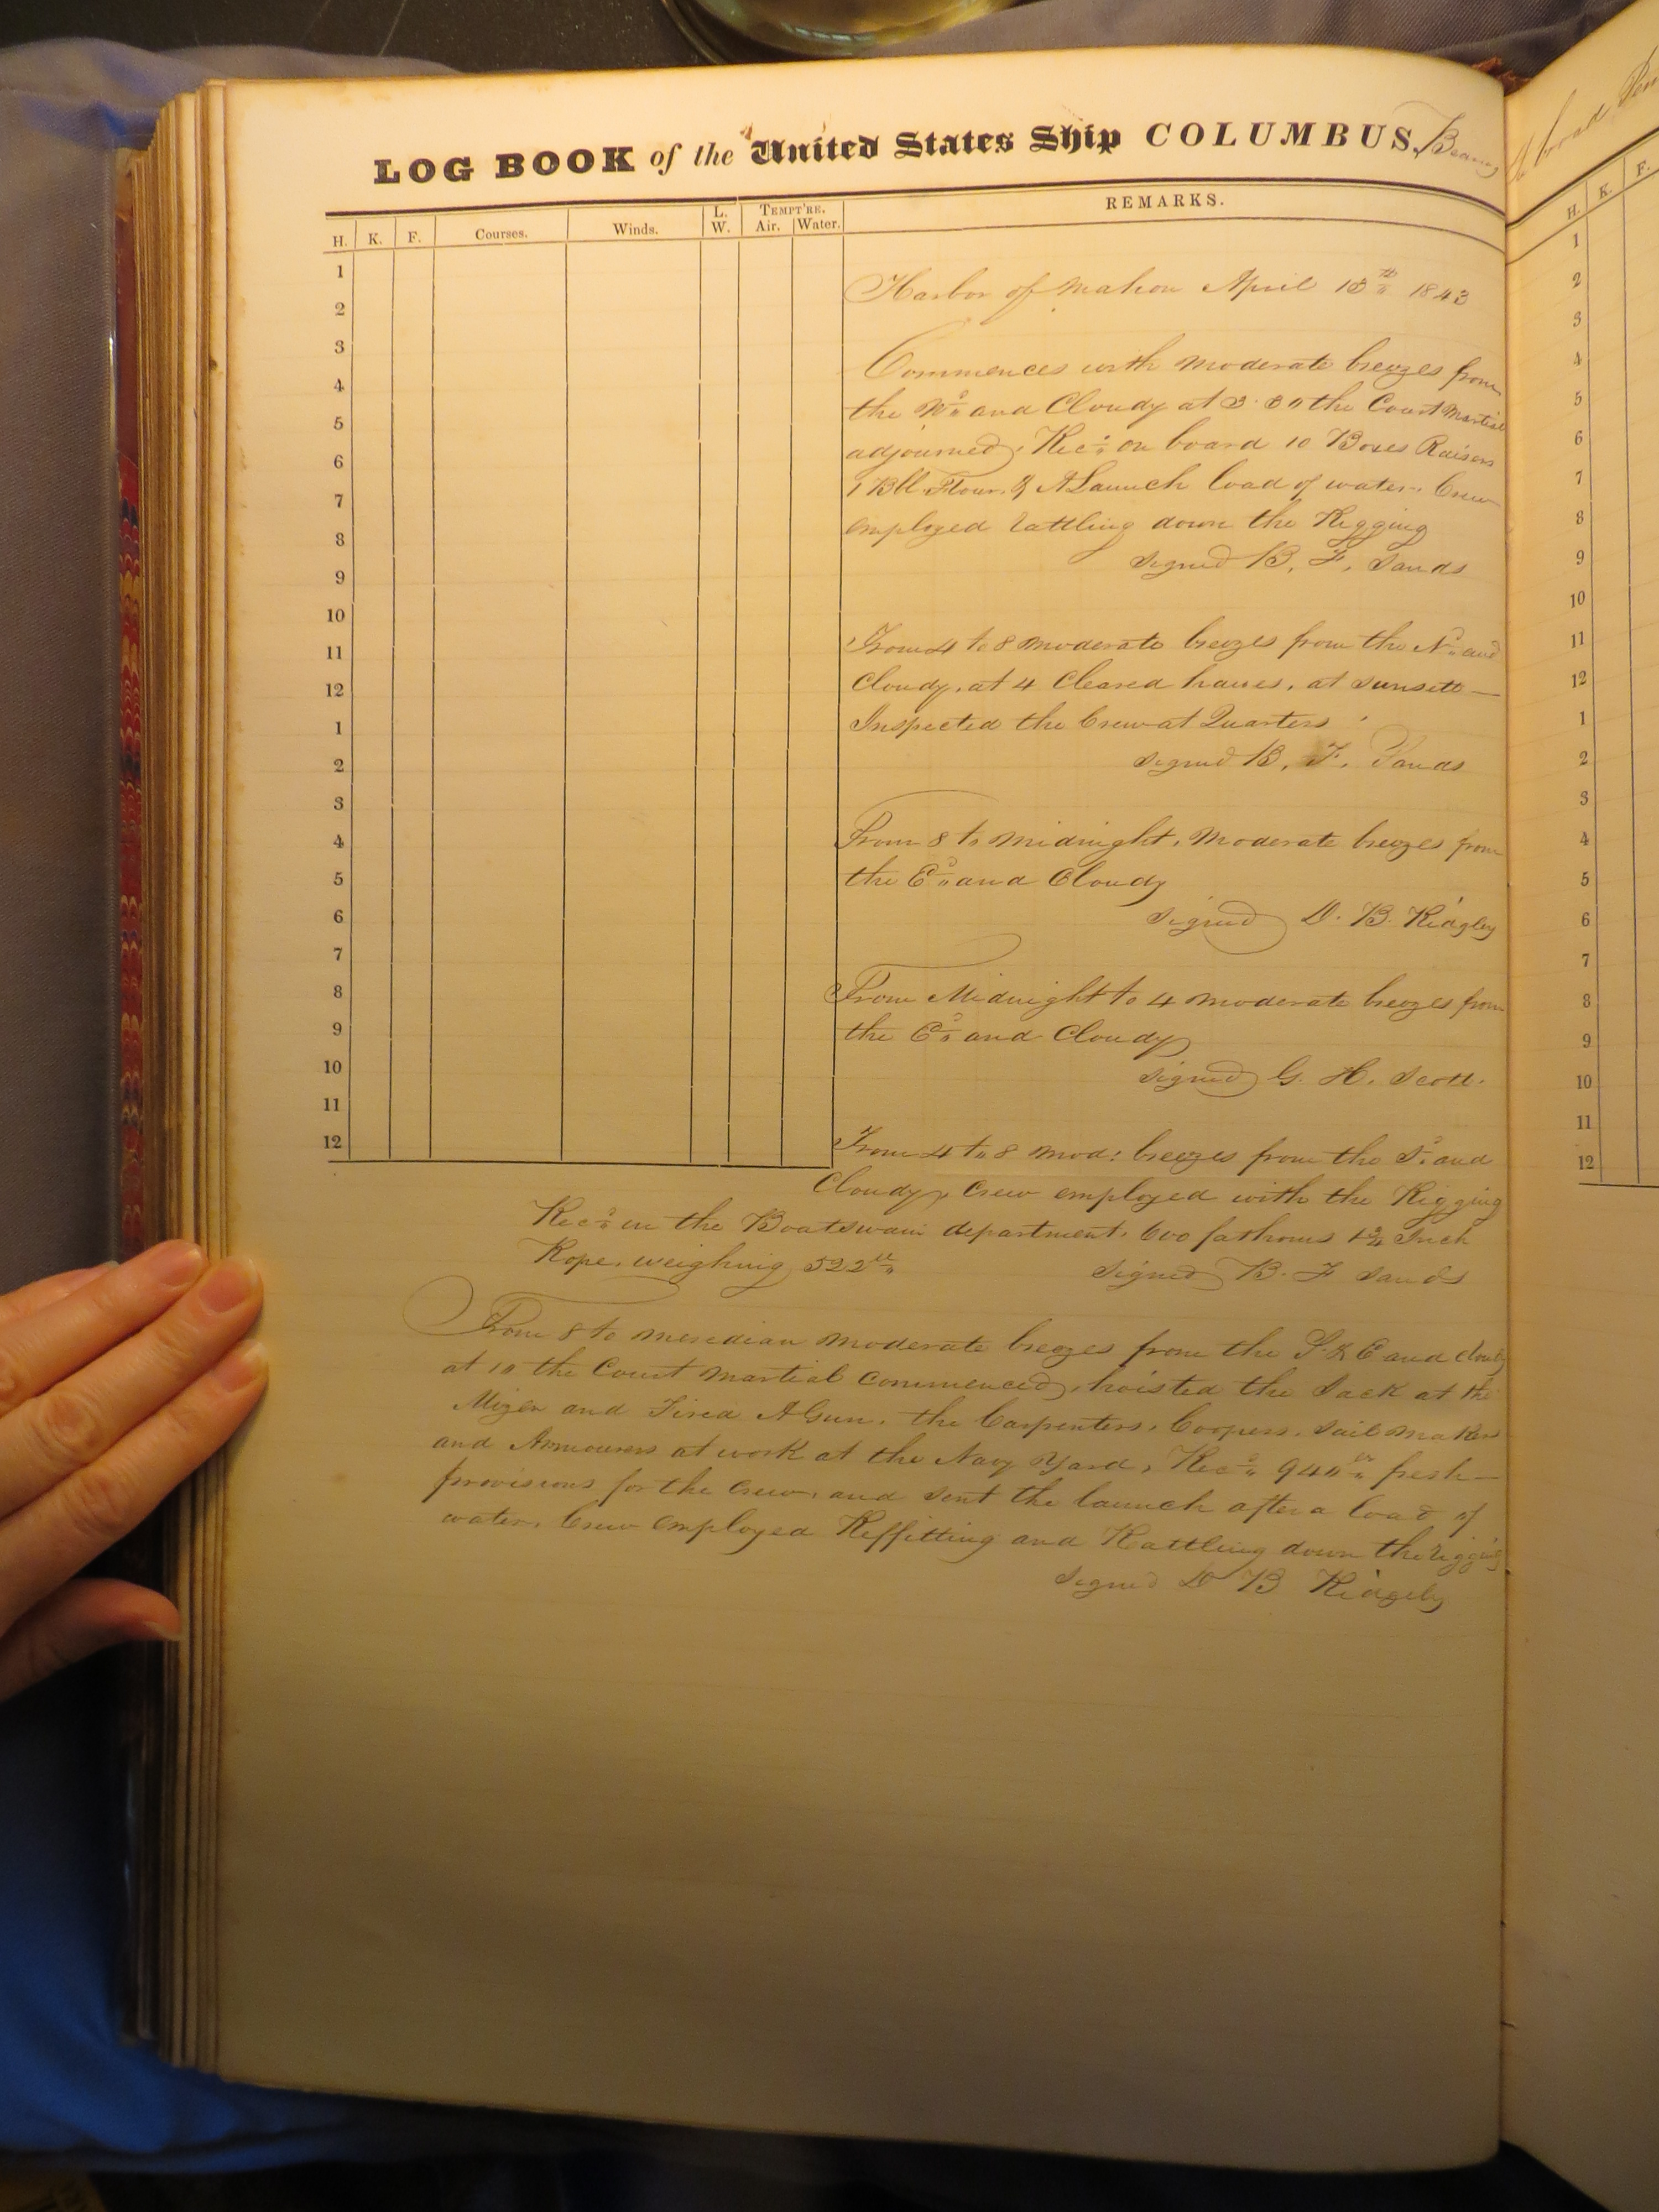 LOG BOOK of the United States Ship COLUMBUS, Bearing
H. K. F. Courses. Winds. L. W. TEMPT'RE. Air. Water. REMARKS.
1
2
3
4
5
6
7
8
9
10
11
12
1
2
3
4
5
6
7
8
9
10
11
12
Harbor of Mahon April 13th 1843
Commences with moderate breezes from
the Wd and Cloudy at 3.30 the Court Martial
adjourned, Recd on board 10 Boxes Raisins
1 Bbl Flour, & A Launch load of water. Crew
employed rattling down the Rigging
signed B. F. Sands
From 4 to 8 moderate breezes from the Nd and
Cloudy, at 4 Cleared hause, at sunsett
Inspected the Crew at Quarters
signed B. F. Sands
From 8 to midnight, Moderate breezes from
the Ed and Cloudy
signed D. B. Ridgley
From Midnight to 4 moderate breezes from
the Ed and Cloudy
signed G. H. Scott.
From 4 to 8 mod: breezes from the Sd and
Cloudy, Crew employed with the Rigging
Recd in the Boatswain department, 600 fathoms Inch
Rope, weighing 522 lbs
signed B. F Sands
From 8 to meredian moderate breezes from the S & E and cloudy
at 10 the Court Martial Commenced, hoisted the Jack at the
Mizen and Fired A Gun, the Carpenters, Coopers, Sail makers
and Armourers at work at the Navy Yard, Recd 940 lbs fresh
provisions for the Crew, and sent the launch after a load of
water, Crew Employed Reffitting and Rattling down the rigging
signed D B Ridgely
H broad Pen
H. K. F.
1
2
3
4
5
6
7
8
9
10
11
12
1
2
3
4
5
6
7
8
9
10
11
12